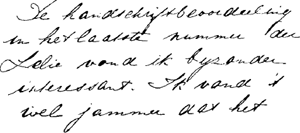 De handschriftbeoordeeling
in het laatste nummer der
Lelie vond ik byzonder
interessant. Ik vond 't
wel jammer dat het